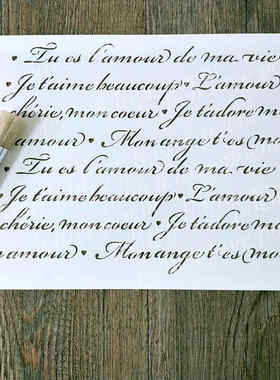 ♥ Tu es l'amour de ma vie
♥ Je t'aime beaucoup ♥ L'amour
chérie, mon coeur ♥ Je t'adore ma
amour ♥ Mon ange t'es (mo
♥ Tu es l'amour de ma vie
♥ Je t'aime beaucoup ♥ L'amour
chérie, mon coeur ♥ Je t'adore ma
amour ♥ Mon ange t'es (mo